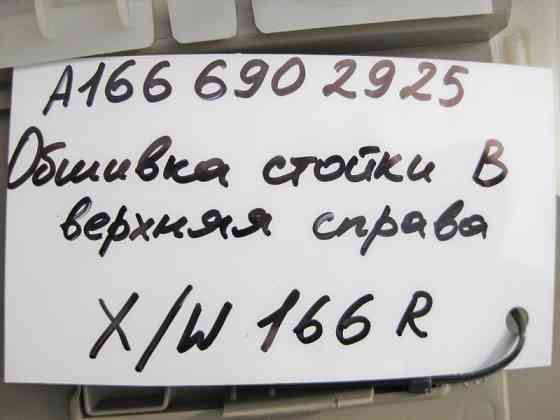 A166 690 2925
Обшивка стойки В
верхняя справа
X/W 166 R